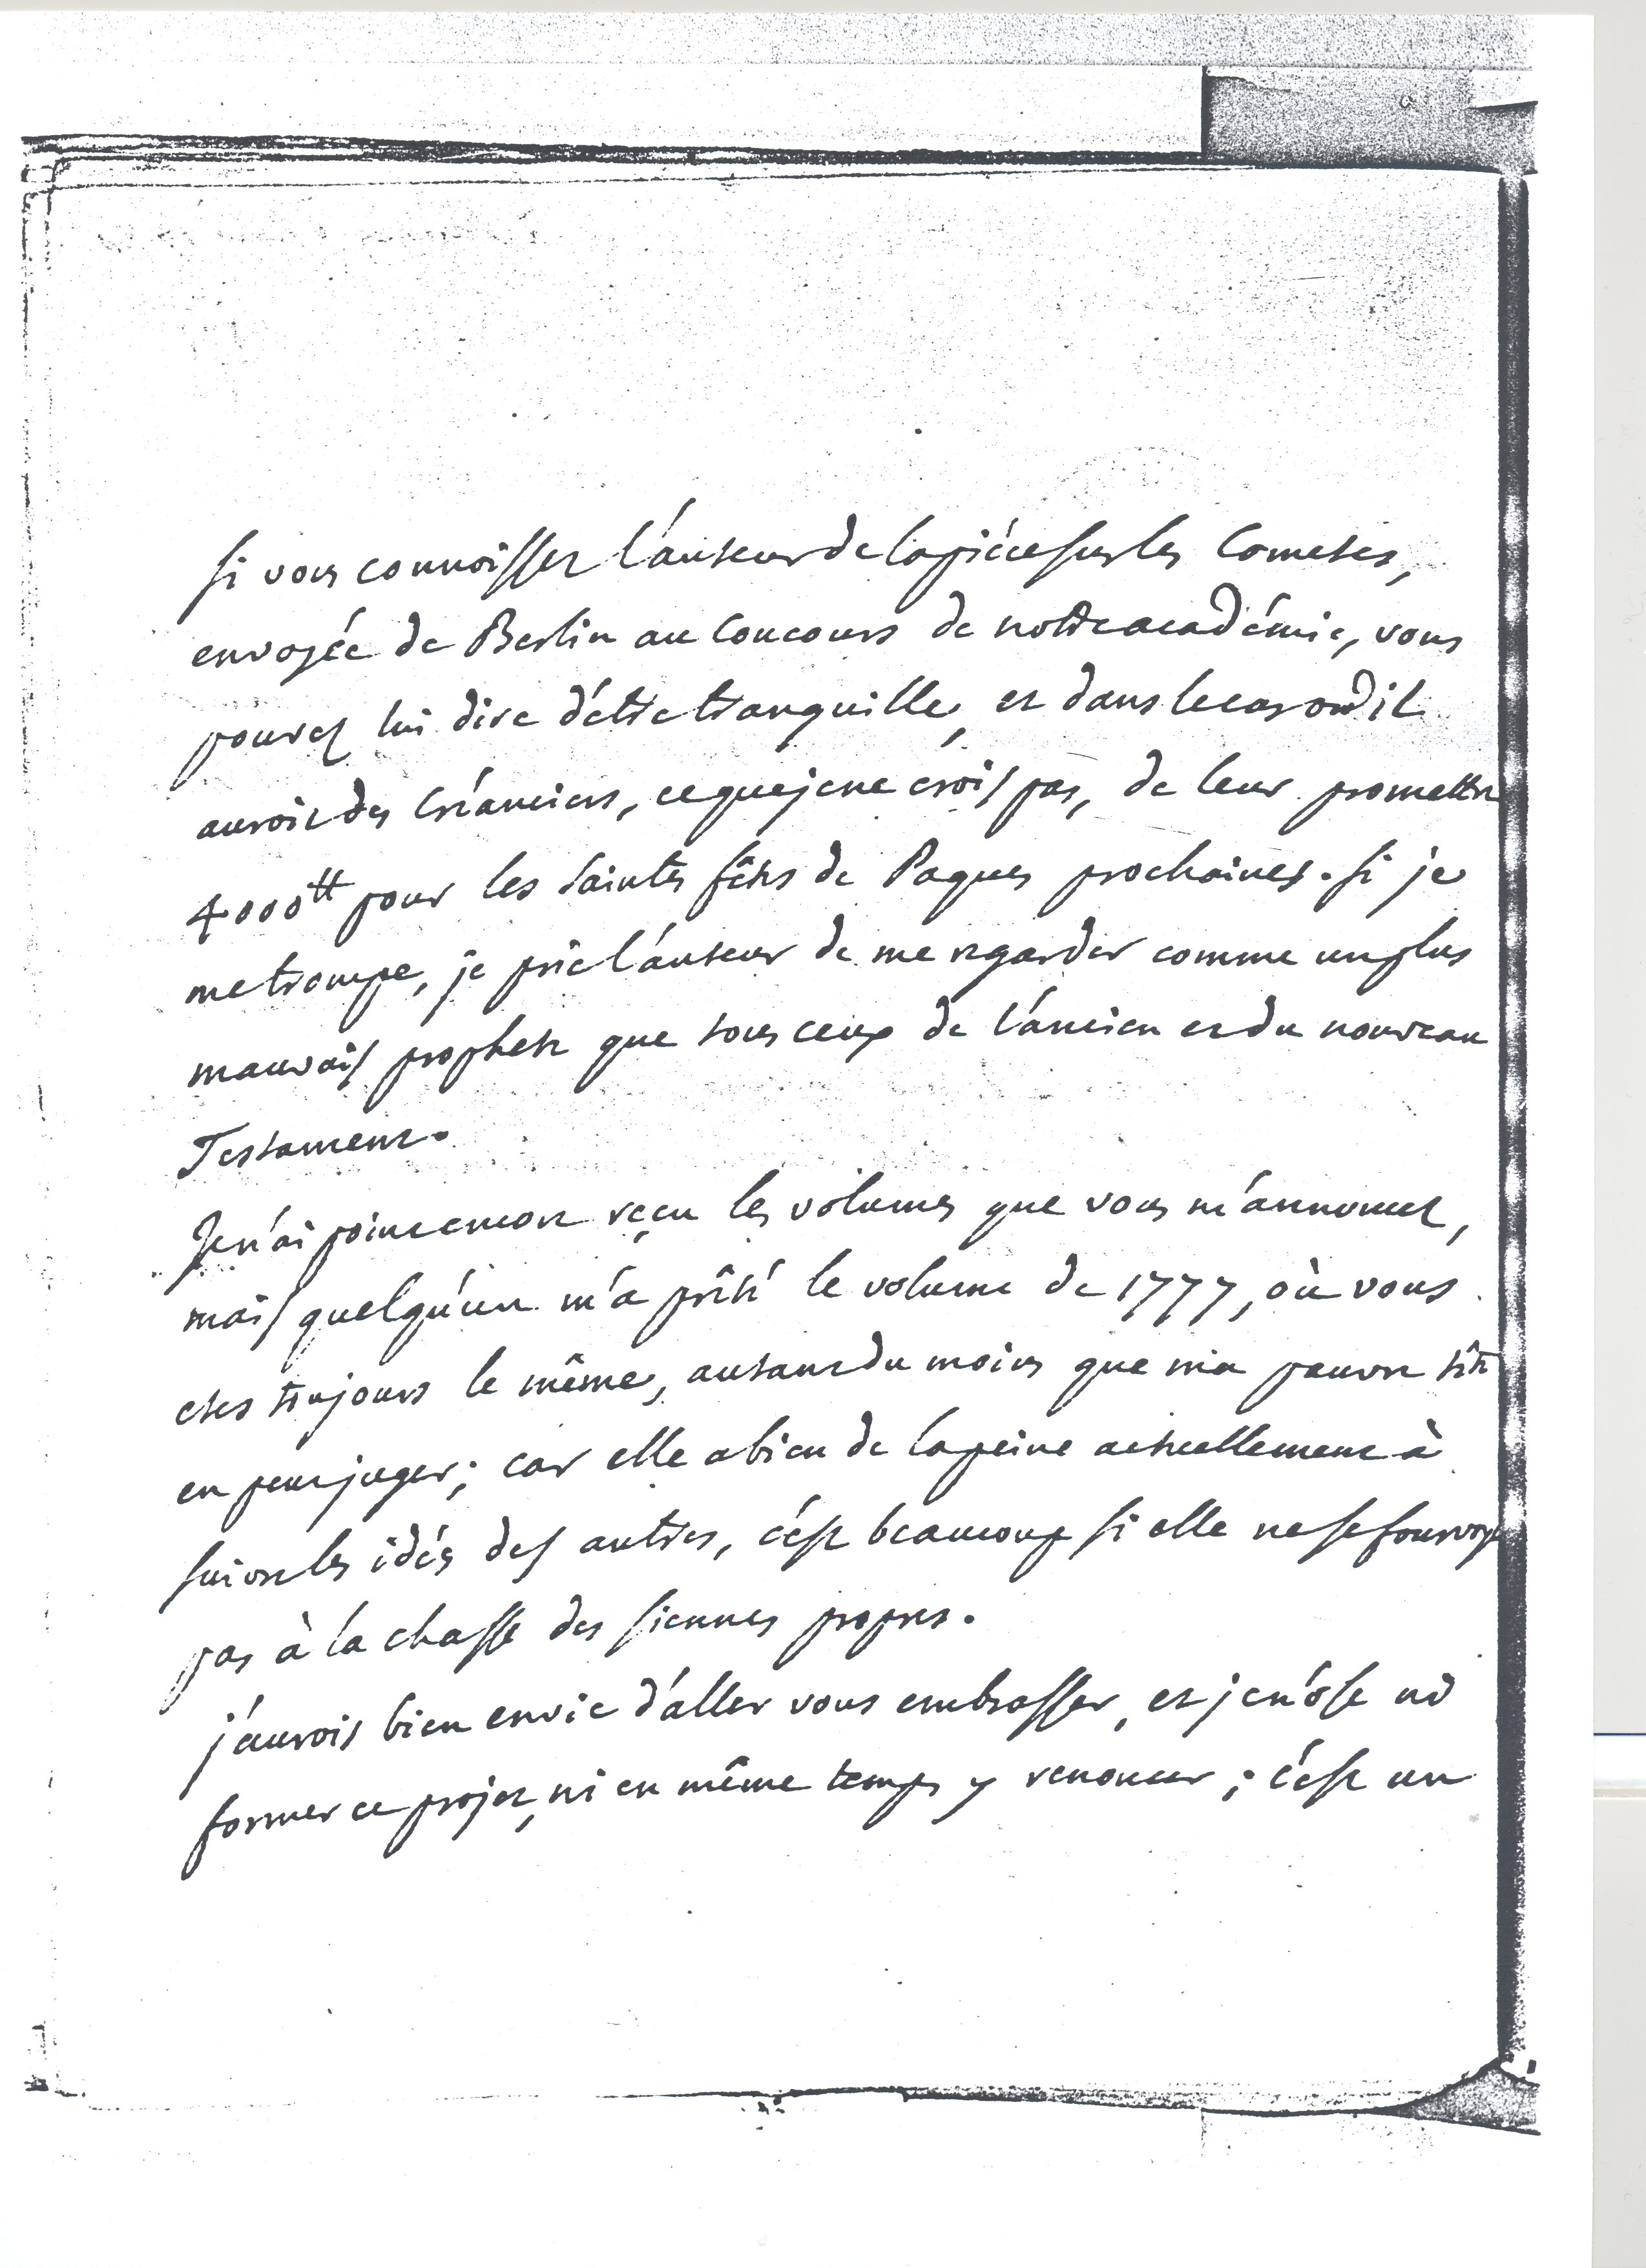 si vous connoissez l'auteur de la piéce sur les Cometes,
envoyée de Berlin au Concours de notre académie, vous
pouvez lui dire d'étre tranquille, et dans le cas où il
auroit des Créanciers, ce que je ne crois pas, de leur promettre
4000tt pour les saintes fêtes de Paques prochaines. si je
me trompe, je prie l'auteur de me regarder comme un plus
mauvais prophete que tous ceux de l'ancien et du nouveau
Testament.
Je n'ai point encore reçu les volumes que vous m'annoncez,
mais quelqu'un m'a prêté le volume de 1777, où vous
etes toujours le même, autant du moins que ma pauvre tête
en peut juger; car elle a bien de la peine actuellement à
suivre les idées des autres, c'est beaucoup si elle ne se fourvoye
pas à la chasse des siennes propres.
j'aurois bien envie d'aller vous embrasser, et je n'ose ni
former ce projet, ni en même temps y renoncer; c'est un